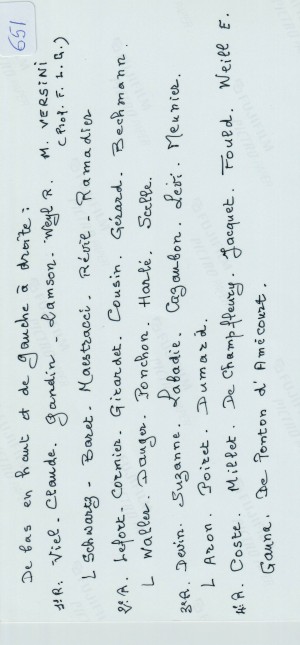 651
De bas en haut et de gauche à droite :
1è R. Viel - Claude. Gandin - Lamson - Weyl R. M. VERSINI
(Prof. F. L. G.)
L Schwartz - Baret - Maestracci - Révil - Ramadier
2è R. Lefort - Cormier - Girardet. Cousin. Gérard. Bechmann.
L Waller. Dauger. Ponchon. Harlé. Scelle.
3è R. Devin. Suzanne. Labadie. Cazaubon. Lévi. Meunier.
L Aron. Poiret. Dumard.
4è R. Coste. Millet. De Champfleury. Jacquet. Fould. Weill E.
Gauna. De Ponton d'Amécourt.